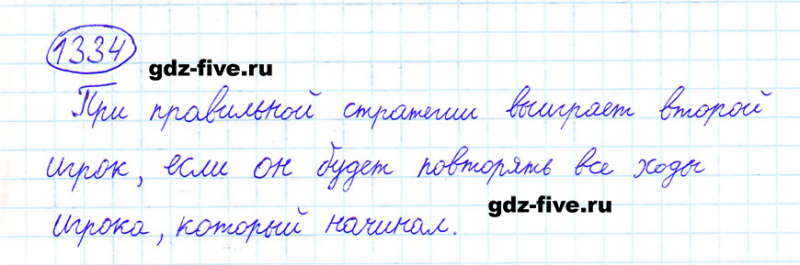 1334
gdz-five.ru
При правильной стратегии выиграет второй
игрок, если он будет повторять все ходы
игрока, который начинал.
gdz-five.ru